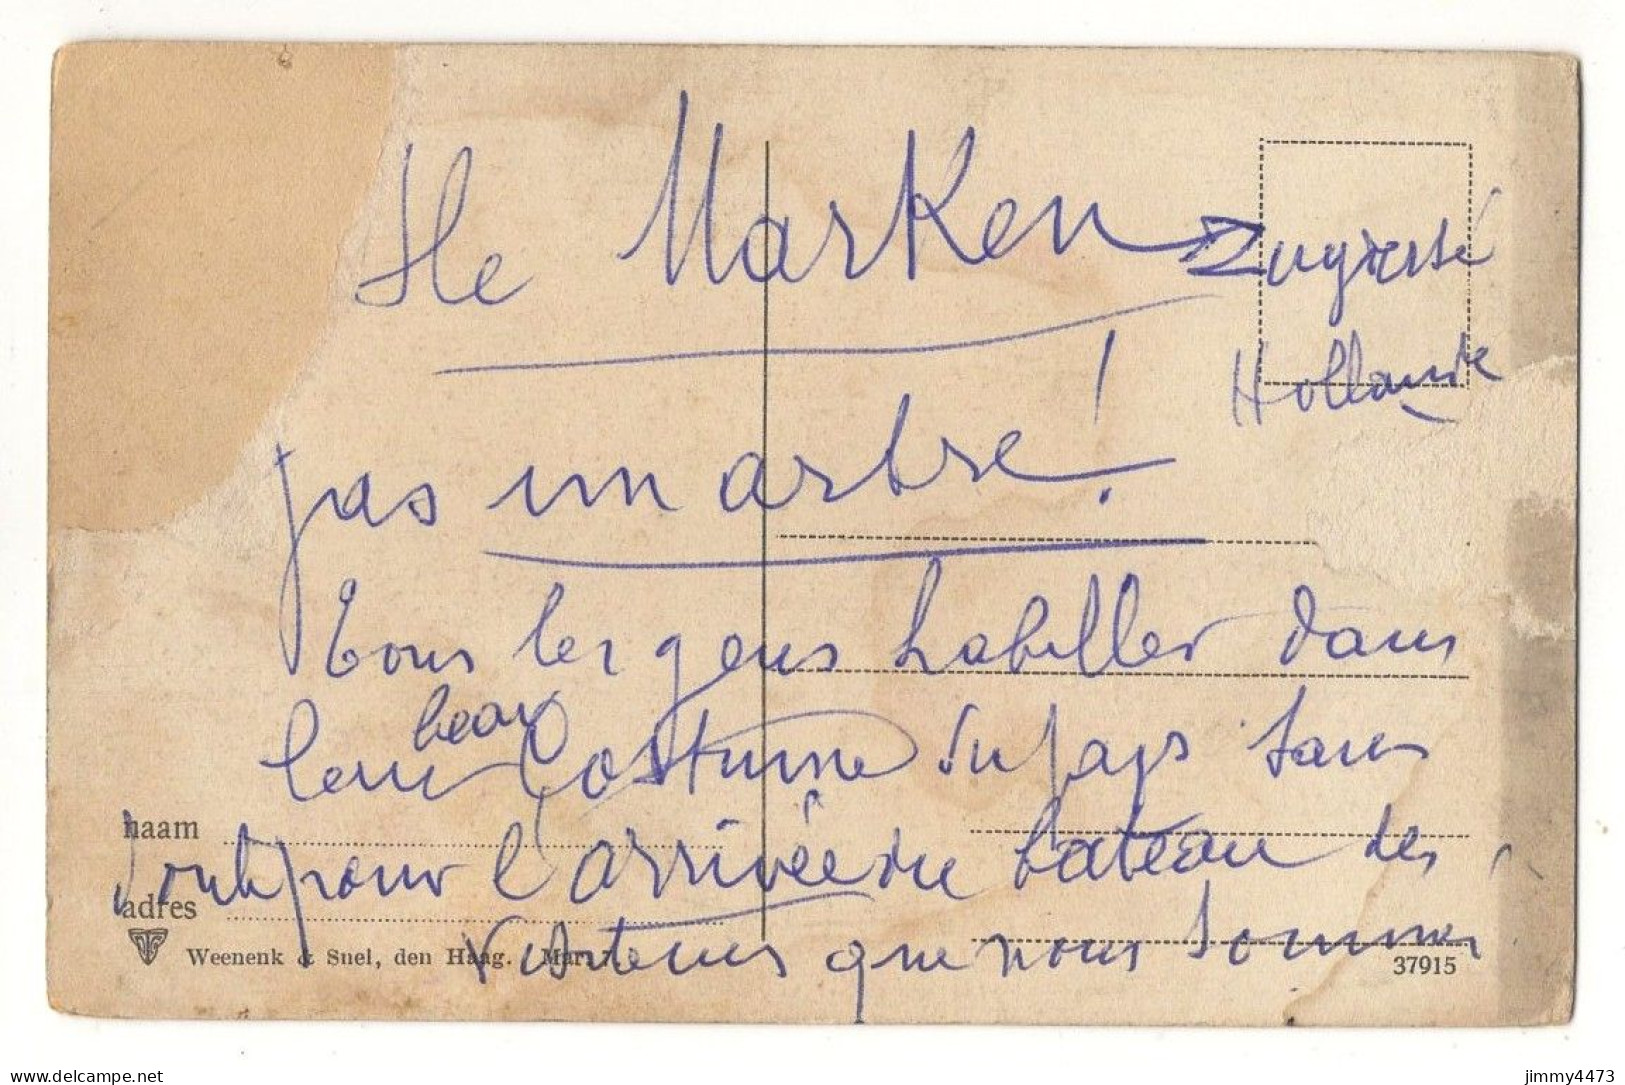 Ile Marken Zuyderzé
Hollande
pas un arbre!
Tous les gens habiller dans
leur beau Costume du pays sans
naam
Sont pour l'arrivée du bateau des
adres
visiteurs que nous sommes
Weenenk & Snel, den Haag.
37915
delcampe.net
jimmy4473